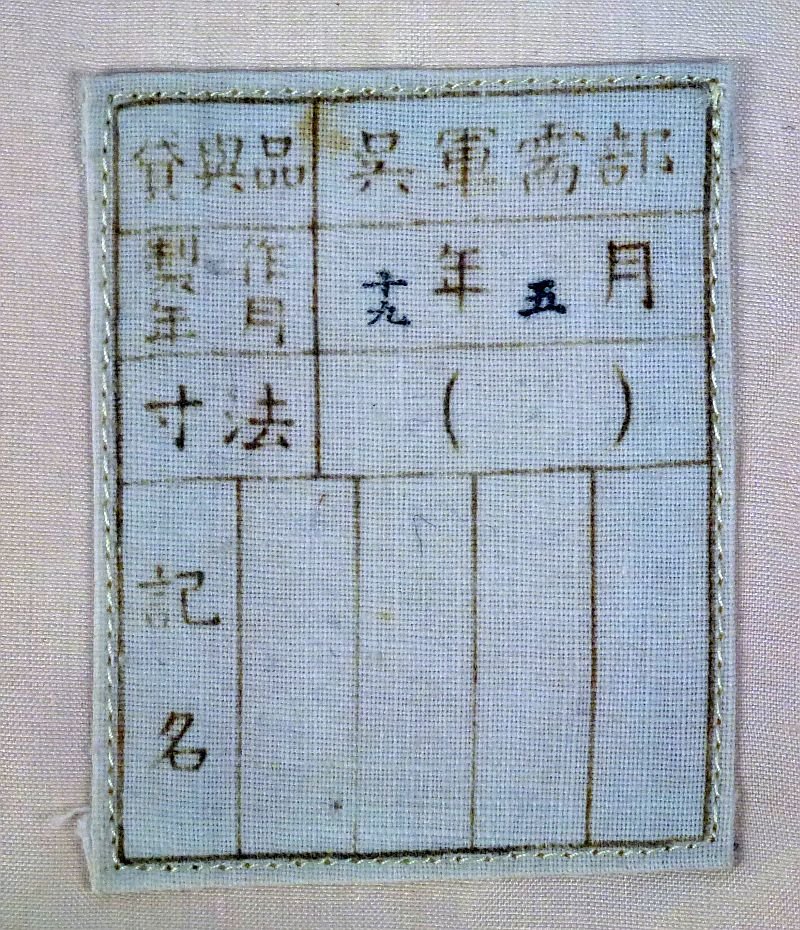 貸與品 呉軍需部
製作年月 十九年五月
寸法 ( )
記名